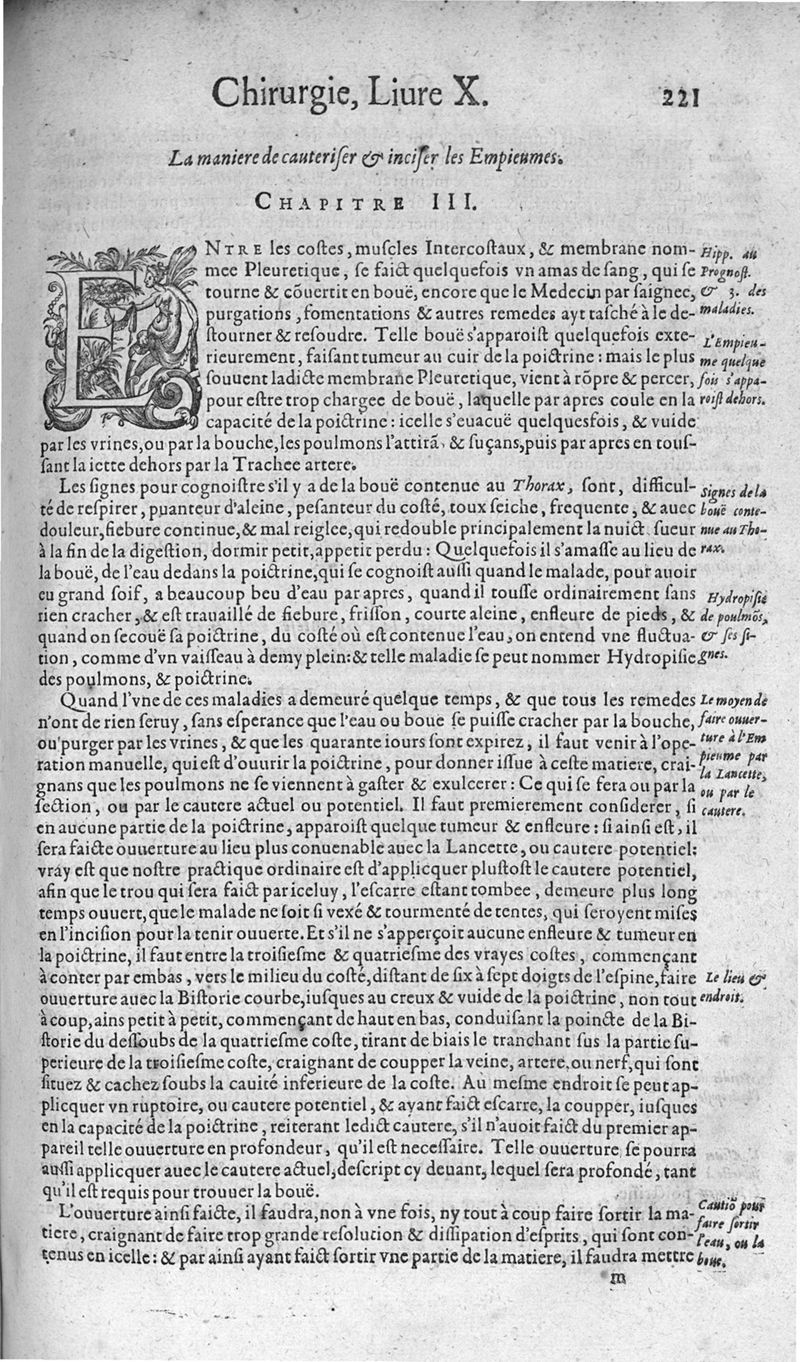 Chirurgie, Liure X. 221
La maniere de cauteriser & inciser les Empieumes.
CHAPITRE III.
ENTRE les costes, muscles Intercostaux, & membrane nom-
mee Pleuretique, se faict quelquefois vn amas de sang, qui se
tourne & cõuertit en bouë, encore que le Medecin par saignee,
purgations, fomentations & autres remedes ayt tasché à le de-
stourner & resoudre. Telle bouë s'apparoist quelquefois exte-
rieurement, faisant tumeur au cuir de la poictrine: mais le plus
souuent ladicte membrane Pleuretique, vient à rõpre & percer,
pour estre trop chargee de bouë, laquelle par apres coule en la
capacité de la poictrine: icelle s'euacuë quelquesfois, & vuide
par les vrines, ou par la bouche, les poulmons l'attirã, & suçans, puis par apres en tous-
sant la iette dehors par la Trachee artere.
Hipp. au
Prognost.
& 3. des
maladies.
L'Empieu-
me quelque
fois s'appa-
roist dehors.
Les signes pour cognoistre s'il y a de la bouë contenue au Thorax, sont, difficul-
té de respirer, puanteur d'aleine, pesanteur du costé, toux seiche, frequente, & auec
douleur, fiebure continue, & mal reiglee, qui redouble principalement la nuict sueur
à la fin de la digestion, dormir petit, appetit perdu: Quelquefois il s'amasse au lieu de
la bouë, de l'eau dedans la poictrine, qui se cognoist aussi quand le malade, pour auoir
eu grand soif, a beaucoup beu d'eau par apres, quand il tousse ordinairement sans
rien cracher, & est trauaillé de fiebure, frisson, courte aleine, enfleure de pieds, &
quand on secouë sa poictrine, du costé où est contenue l'eau, on entend vne fluctua-
tion, comme d'vn vaisseau à demy plein: & telle maladie se peut nommer Hydropisie
des poulmons, & poictrine.
Signes de la
bouë conte-
nue au Tho-
rax.
Hydropisie
de poulmõs,
& ses si-
gnes.
Quand l'vne de ces maladies a demeuré quelque temps, & que tous les remedes
n'ont de rien seruy, sans esperance que l'eau ou boue se puisse cracher par la bouche,
ou purger par les vrines, & que les quarante iours sont expirez, il faut venir à l'ope-
ration manuelle, qui est d'ouurir la poictrine, pour donner issue à ceste matiere, crai-
gnans que les poulmons ne se viennent à gaster & exulcerer: Ce qui se fera ou par la
section, ou par le cautere actuel ou potentiel. Il faut premierement considerer, si
en aucune partie de la poictrine, apparoist quelque tumeur & enfleure: si ainsi est, il
sera faicte ouuerture au lieu plus conuenable auec la Lancette, ou cautere potentiel:
vray est que nostre practique ordinaire est d'applicquer plustost le cautere potentiel,
afin que le trou qui sera faict par iceluy, l'escarre estant tombee, demeure plus long
temps ouuert, que le malade ne soit si vexé & tourmenté de tentes, qui seroyent mises
en l'incision pour la tenir ouuerte. Et s'il ne s'apperçoit aucune enfleure & tumeur en
la poictrine, il faut entre la troisiesme & quatriesme des vrayes costes, commençant
à conter par embas, vers le milieu du costé, distant de six à sept doigts de l'espine, faire
ouuerture auec la Bistorie courbe, iusques au creux & vuide de la poictrine, non tout
à coup, ains petit à petit, commençant de haut en bas, conduisant la poincte de la Bi-
storie du dessoubs de la quatriesme coste, tirant de biais le tranchant sus la partie su-
perieure de la troisiesme coste, craignant de coupper la veine, artere, ou nerf, qui sont
situez & cachez soubs la cauité inferieure de la coste. Au mesme endroit se peut ap-
plicquer vn ruptoire, ou cautere potentiel, & ayant faict escarre, la coupper, iusques
en la capacité de la poictrine, reiterant ledict cautere, s'il n'auoit faict du premier ap-
pareil telle ouuerture en profondeur, qu'il est necessaire. Telle ouuerture se pourra
aussi applicquer auec le cautere actuel, descript cy deuant, lequel sera profondé, tant
qu'il est requis pour trouuer la bouë.
Le moyen de
faire ouuer-
ture à l'Em
pieume par
la Lancette,
ou par le
cautere.
Le lieu &
endroit.
L'ouuerture ainsi faicte, il faudra, non à vne fois, ny tout à coup faire sortir la ma-
tiere, craignant de faire trop grande resolution & dissipation d'esprits, qui sont con-
tenus en icelle: & par ainsi ayant faict sortir vne partie de la matiere, il faudra mettre
Cautiõ pour
faire sortir
l'eau, ou la
boue.
m